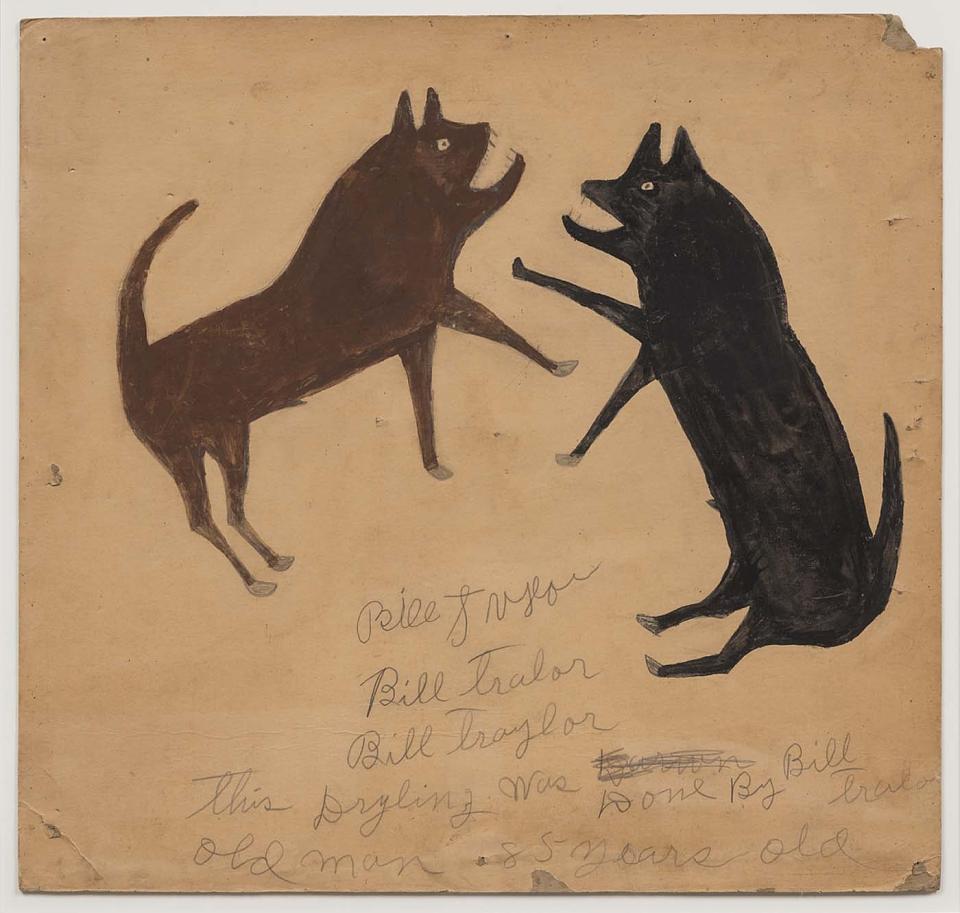 Bill
Bill tralor
Bill traylor
this Dryling was Done By Bill tralo
Old man 85 years old